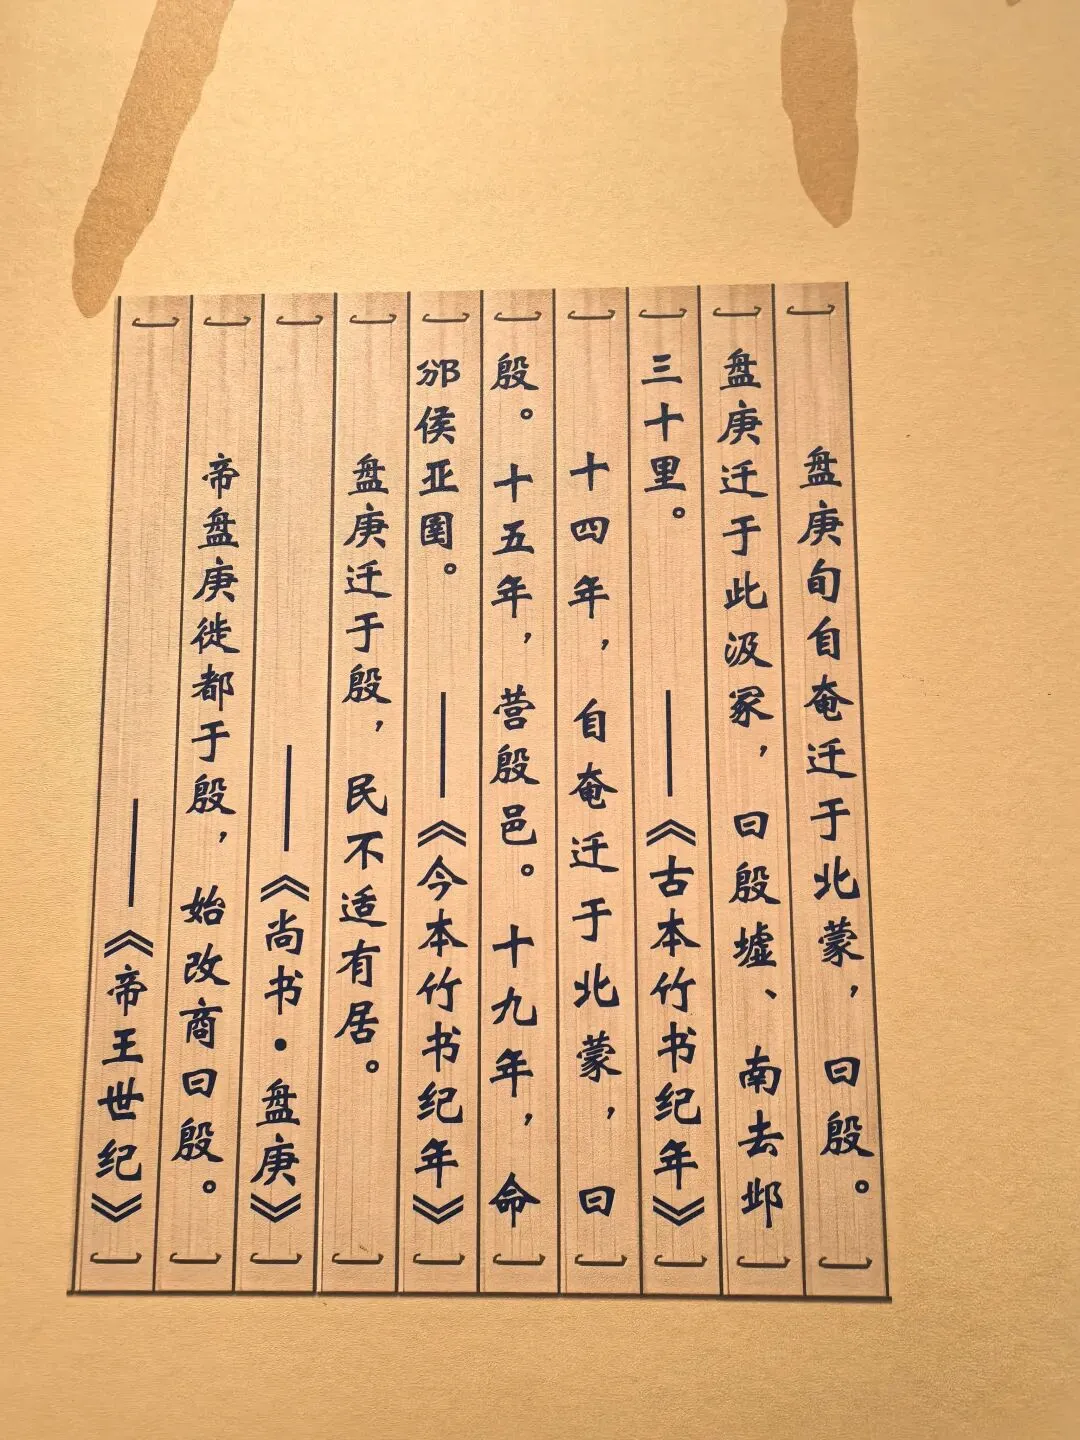 盘庚旬自奄迁于北蒙，曰殷。
盘庚迁于此汲冢，曰殷墟、南去邺
三十里。
——《古本竹书纪年》
十四年，自奄迁于北蒙，曰
殷。十五年，营殷邑。十九年，命
邠侯亚圉。
——《今本竹书纪年》
盘庚迁于殷，民不适有居。
——《尚书·盘庚》
帝盘庚徙都于殷，始改商曰殷。
——《帝王世纪》